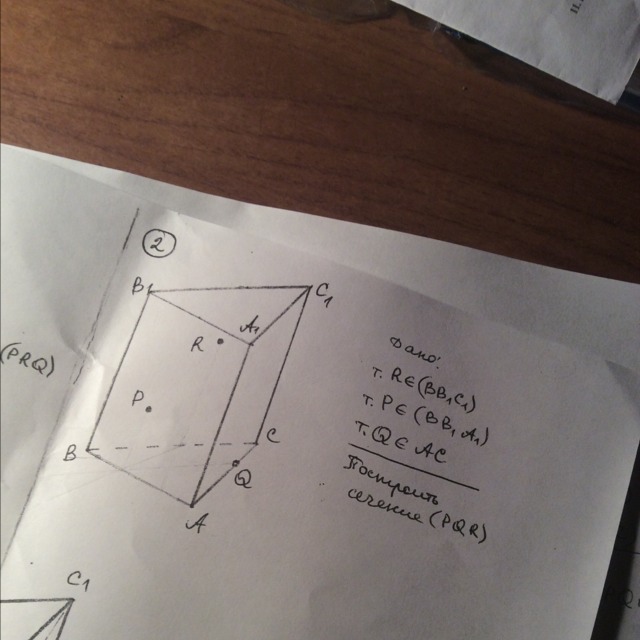 (PRQ)
2
B1
C1
A1
R
P
B
C
Q
A
Дано:
т. R∈(BB1C1)
т. P∈(BB1A1)
т. Q∈AC
Построить
сечение (PQR)
C1